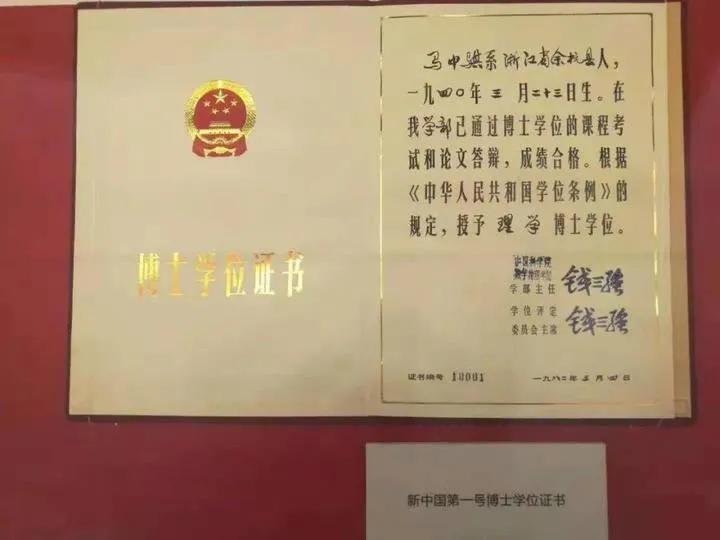 博士学位证书
马中骐系浙江省余杭县人，
一九四〇年三月二十三日生。在
我学部已通过博士学位的课程考
试和论文答辩，成绩合格。根据
《中华人民共和国学位条例》的
规定，授予理学博士学位。
中国科学院
数学物理学部
学部主任 钱三强
学位评定
委员会主席 钱三强
证书编号 10001 一九八二年三月四日
新中国第一号博士学位证书